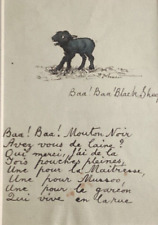 Baa! Baa! Black Sheep
Baa! Baa! Mouton Noir
Avez vous de laine?
Oui merci, j'ai de la
Trois pouches pleines,
Une pour la Maitresse,
Une pour Mussoo,
Une pour le garçon
Qui vive en la rue